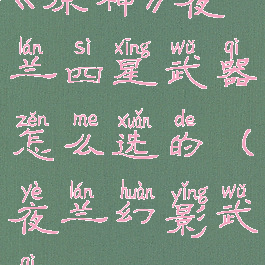 《原神》夜
lán sì xīng wǔ qì
兰四星武器
zěn me xuǎn de
怎么选的（
yè lán huàn yǐng wǔ
夜兰幻影武
qì